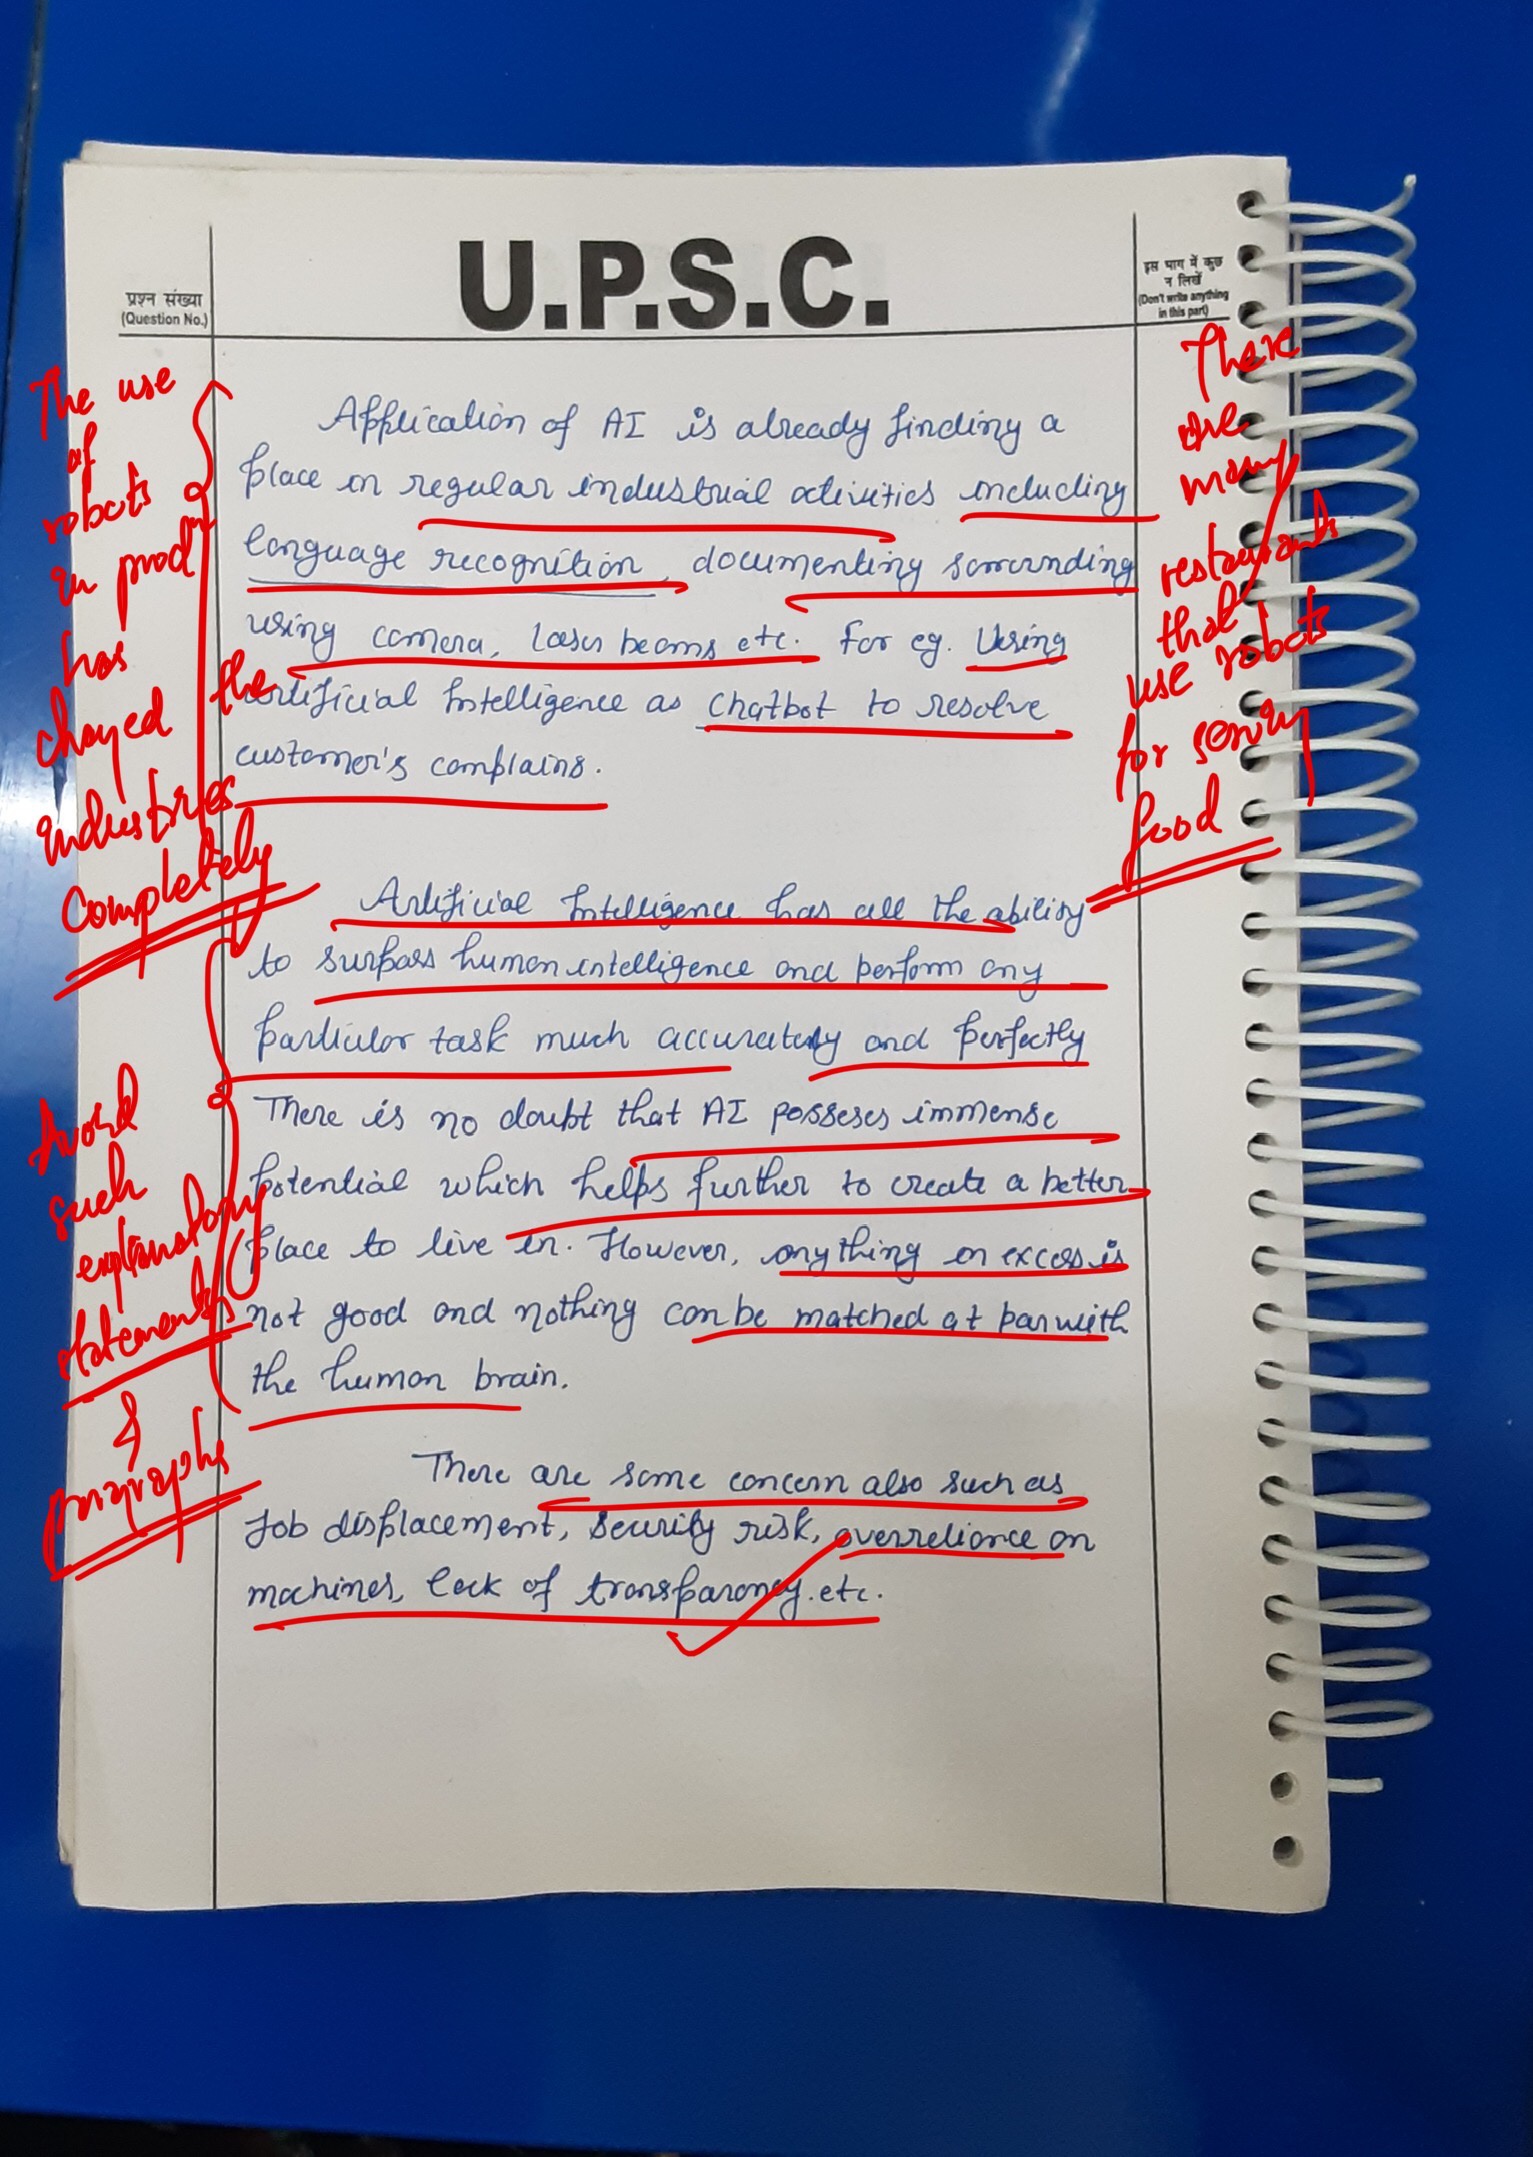 U.P.S.C.
प्रश्न संख्या
(Question No.)
इस भाग में कुछ
न लिखें
(Don't write anything
in this part)
Application of AI is already finding a
place in regular industrial activities including
language recognition, documenting sorrounding
using camera, laser beams etc. For eg. Using
artificial Intelligence as chatbot to resolve
customer's complains.
Artificial Intelligence has all the ability
to surpass human intelligence and perform any
particular task much accurately and perfectly
There is no doubt that AI posseses immense
potential which helps further to create a better
place to live in. However, anything in excess is
not good and nothing can be matched at par with
the human brain.
There are some concern also such as
Job displacement, security risk, overreliance on
machines, lack of transparency. etc.
The use
of
robots
in prodn
has
changed the
industries
completely
Avoid
such
explanatory
statements
&
paragraphs
There
are
many
restaurants
that
use robots
for serving
food